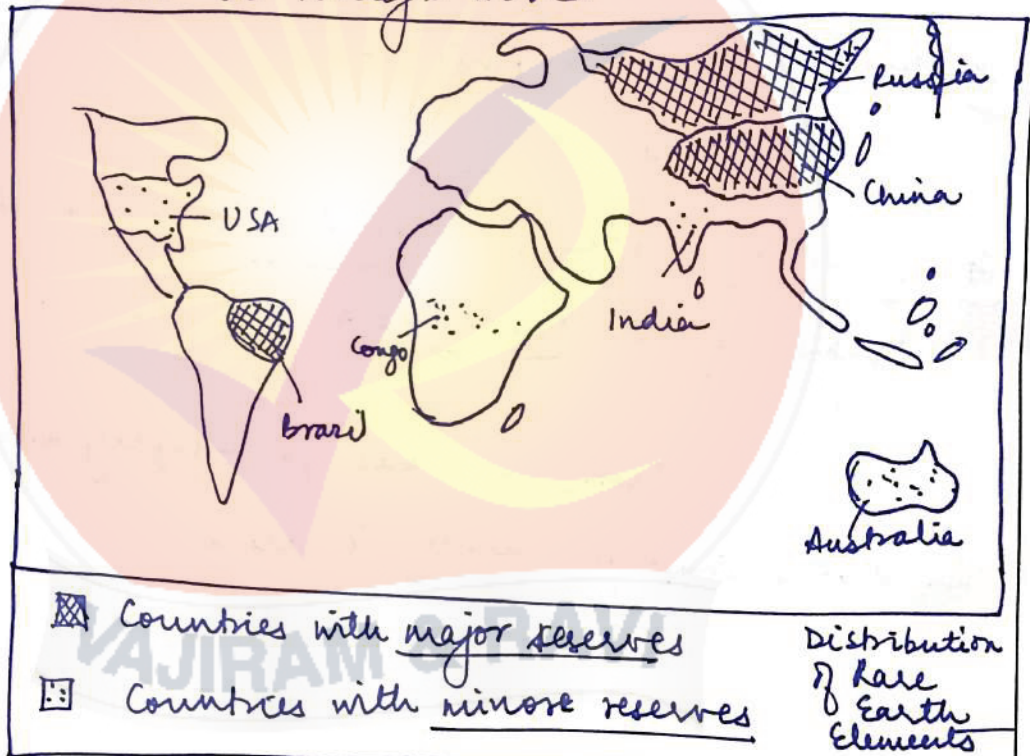 Russia
China
USA
India
Congo
Brazil
Australia
Countries with major reserves
Countries with minor reserves
Distribution
of Rare
Earth
Elements
VAJIRAM & RAVI